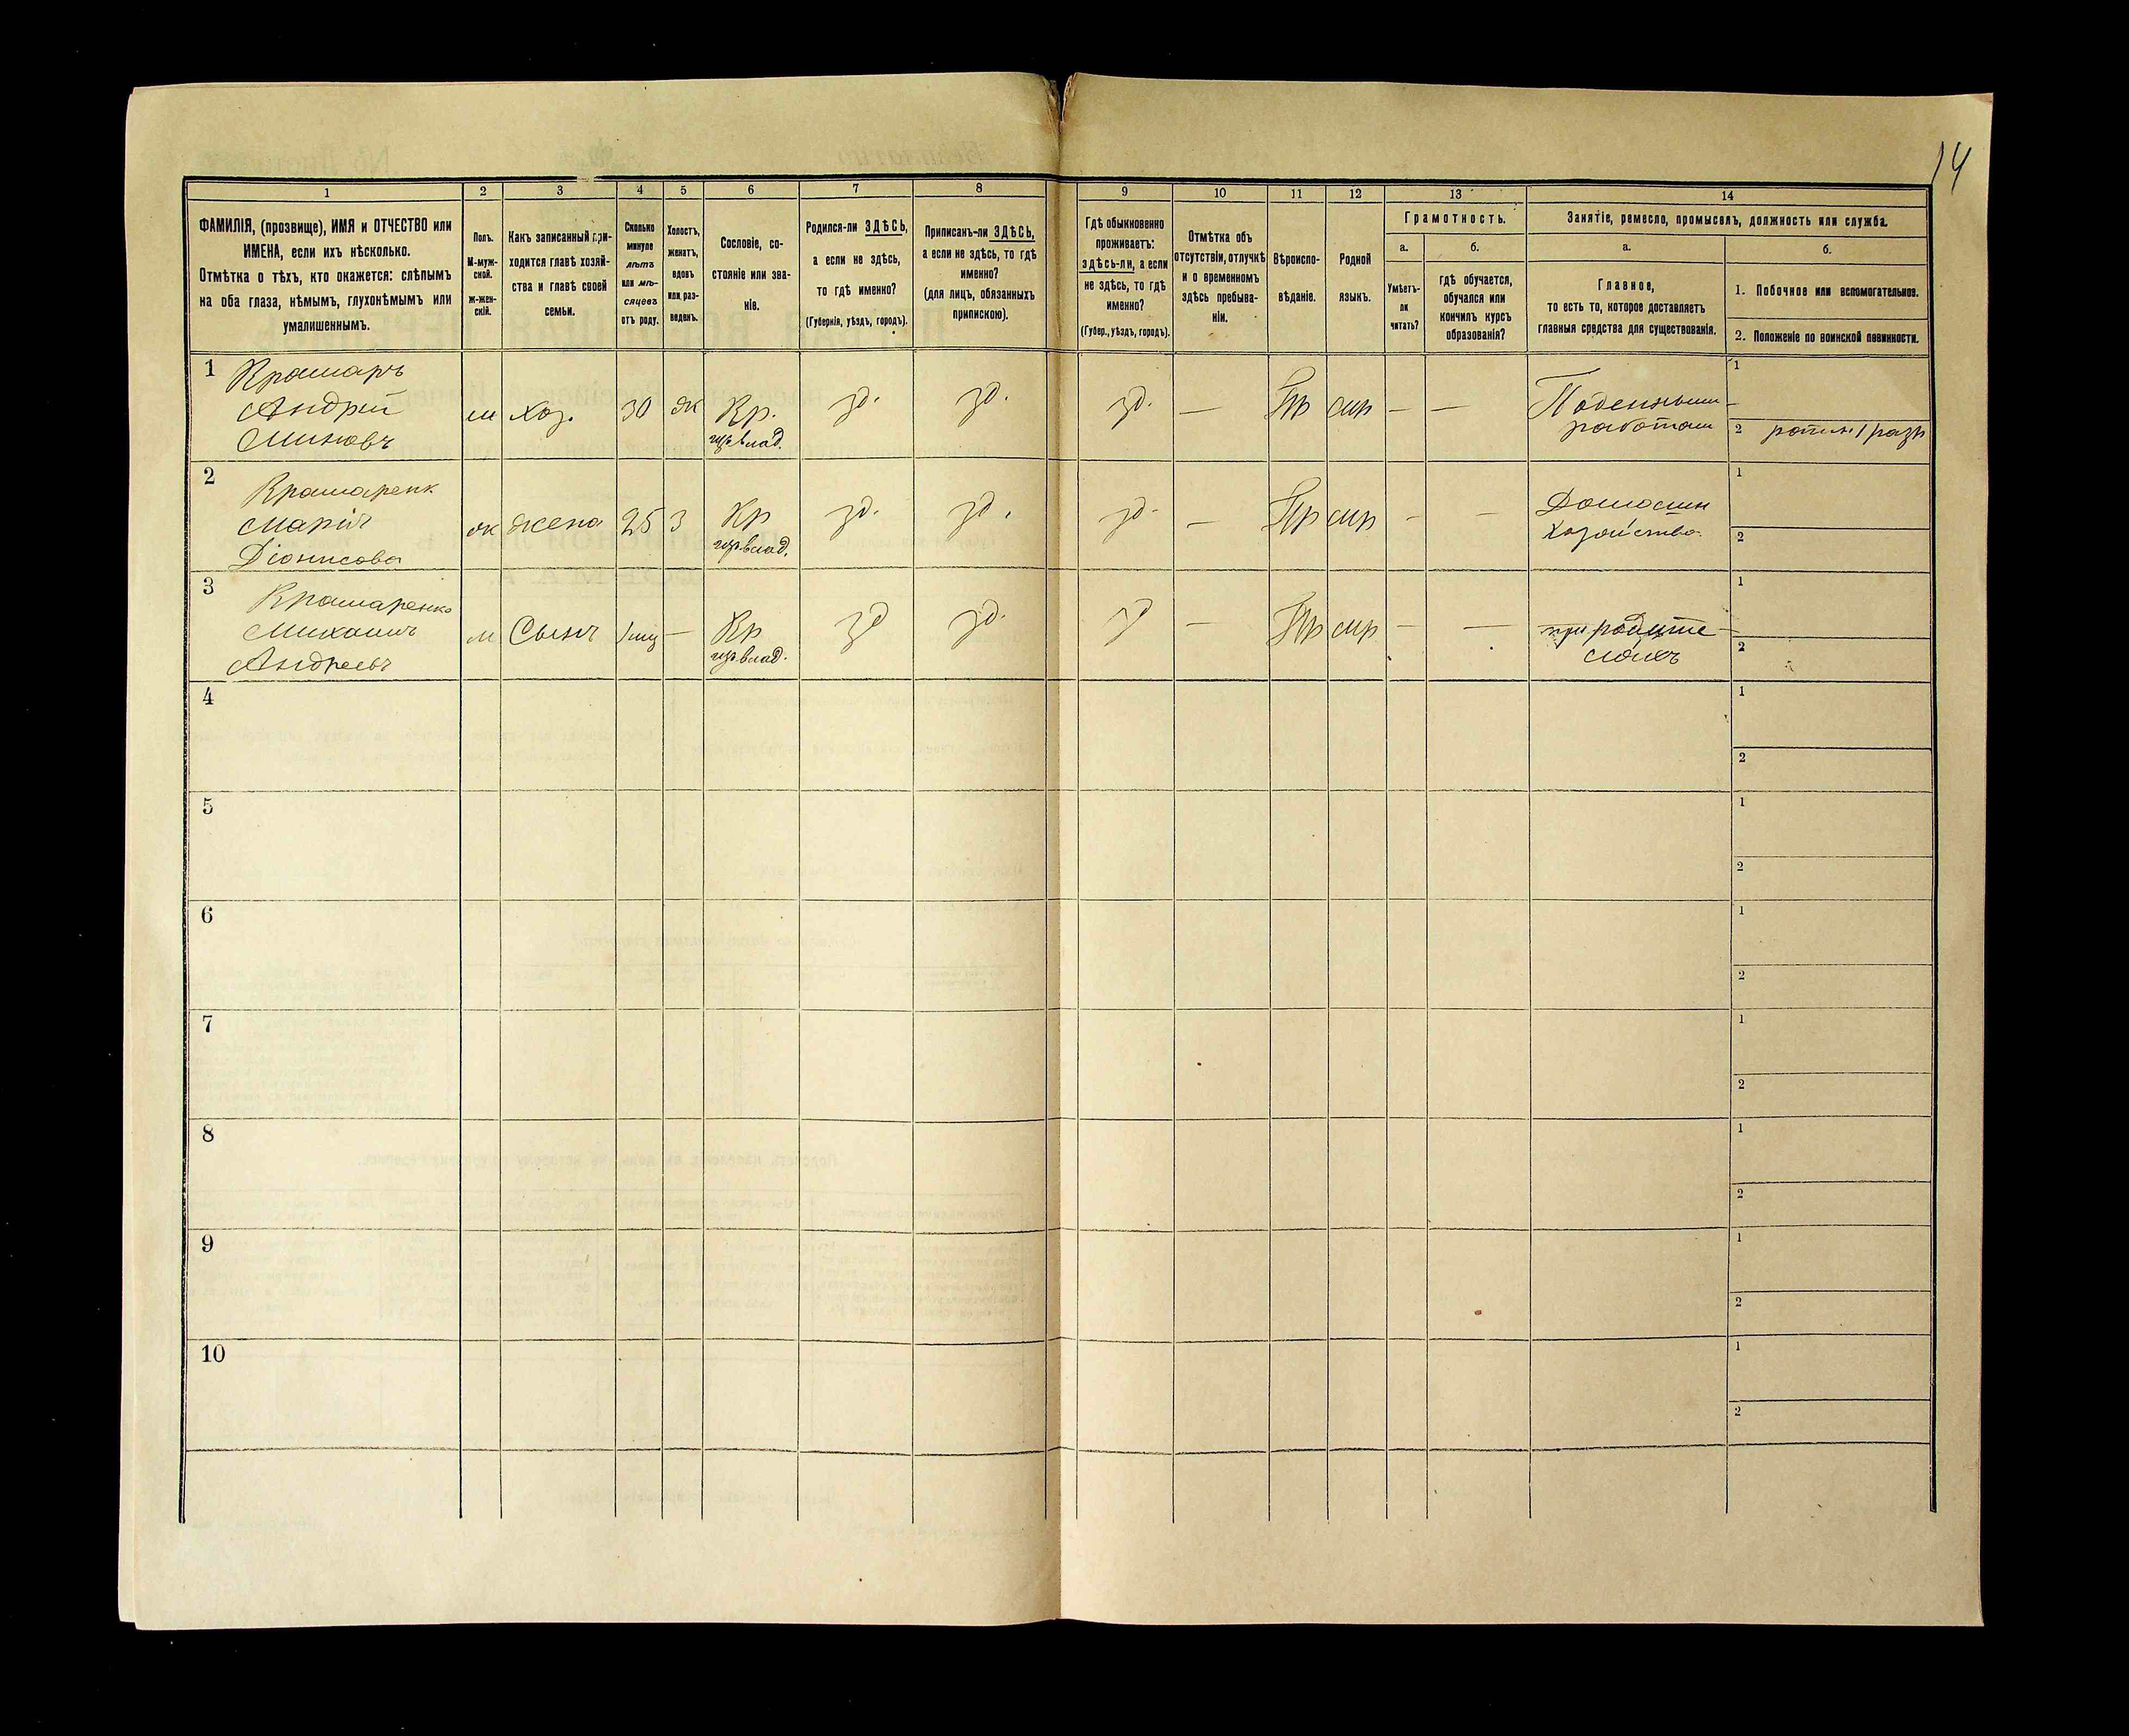 14
1 2 3 4 5 6 7 8 9 10 11 12 13 14
ФАМИЛІЯ, (прозвище), ИМЯ и ОТЧЕСТВО или
ИМЕНА, если ихъ нѣсколько.
Отмѣтка о тѣхъ, кто окажется: слѣпымъ
на оба глаза, нѣмымъ, глухонѣмымъ или
умалишеннымъ.
Полъ.
М-муж-
ской.
ж-жен-
скій.
Какъ записанный при-
ходится главѣ хозяй-
ства и главѣ своей
семьи.
Сколько
минуло
лѣтъ
или мѣ-
сяцевъ
отъ роду.
Холостъ,
женатъ,
вдовъ
или раз-
веденъ.
Сословіе, со-
стояніе или зва-
ніе.
Родился-ли ЗДѢСЬ,
а если не здѣсь,
то гдѣ именно?
(Губернія, уѣздъ, городъ).
Приписанъ-ли ЗДѢСЬ,
а если не здѣсь, то гдѣ
именно?
(для лицъ, обязанныхъ
припискою).
Гдѣ обыкновенно
проживаетъ:
здѣсь-ли, а если
не здѣсь, то гдѣ
именно?
(Губер., уѣздъ, городъ).
Отмѣтка объ
отсутствіи, отлучкѣ
и о временномъ
здѣсь пребыва-
ніи.
Вѣроиспо-
вѣданіе.
Родной
языкъ.
Грамотность.
а.
Умѣетъ-
ли
читать?
б.
гдѣ обучается,
обучался или
кончилъ курсъ
образованія?
Занятіе, ремесло, промыселъ, должность или служба.
а.
Главное,
то есть то, которое доставляетъ
главныя средства для существованія.
б.
1. Побочное или вспомогательное.
2. Положеніе по воинской повинности.
1
Крамаръ
Андрій
Миновъ
м
хоз.
30
ж
Кр.
влад.
зд.
зд.
зд.
—
Пр
мр
—
—
Поденным
работам
1
2 ратн. 1 разр
2
Крамаренк
Марія
Діонисова
ж
жена
25
З
Кр
влад.
зд.
зд.
зд.
—
Пр
мр
—
—
Домашн
хозяйство
1
2
3
Крамаренко
Михаилъ
Андреевъ
м
Сынъ
1 мц
—
Кр
влад.
зд
зд.
зд
Пр
мр
—
—
при родите
ляхъ
1
2
4
1
2
5
1
2
6
1
2
7
1
2
8
1
2
9
1
2
10
1
2